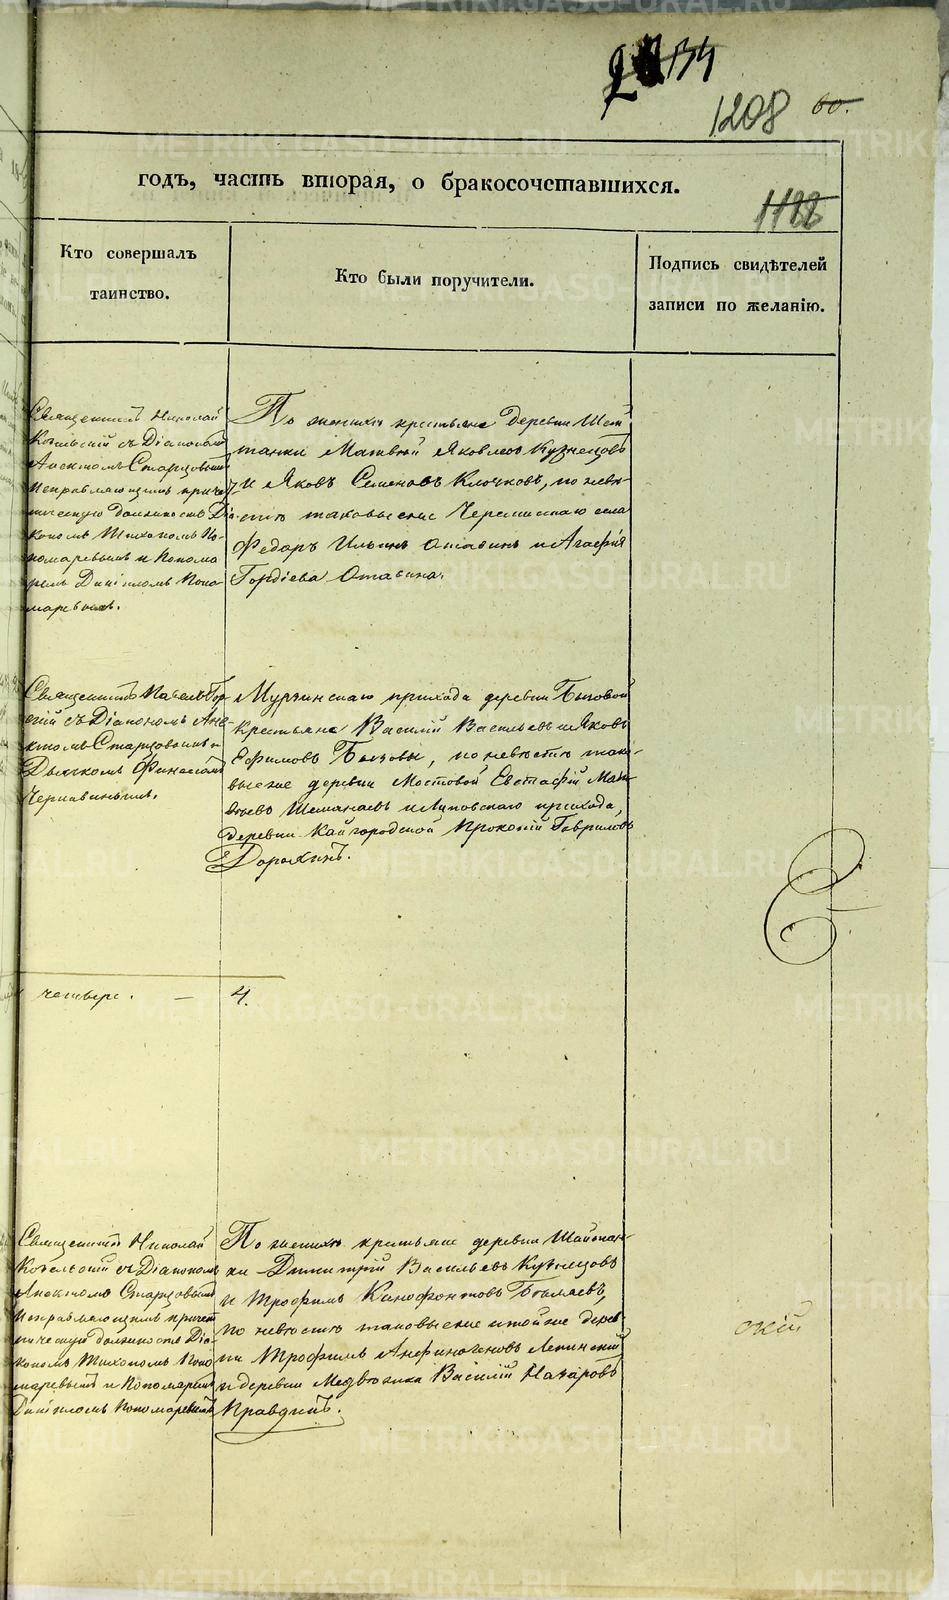 1208 60.
годъ, часть вторая, о бракосочетавшихся.
1188
Кто совершалъ
таинство.
Кто были поручители.
Подпись свидѣтелей
записи по желанію.
Священникъ Николай
съ Діакономъ
Старцовымъ
Исправляющимъ приче-
тническую должность Діа-
кономъ Тихономъ По-
номаревымъ и Понома
ремъ Даніиломъ Поно-
маревымъ.
По женихѣ крестьяне деревни
Матвей Яковлевъ Кузнецовъ
и Яковъ Семеновъ Клочковъ, по невѣ-
стѣ таковые же Черемисскаго села
Федоръ Ильинъ Отавинъ и Агафія
Гордіева Отавина.
Священникъ Павелъ
съ Діакономъ
Старцовымъ и
Дьячкомъ Финеесомъ
Чернавинымъ.
Мурзинскаго прихода деревни Бызовой
Крестьяне Василій Васильевъ и Яковъ
Ефимовъ Бызовы, по невѣстѣ тако-
вые же деревни Мостовой Евстафій Мат
вѣевъ Шеманаевъ и Липовскаго прихода,
деревни Кайгородской Прокопій Гавриловъ
Дорохинъ.
четыре. — 4.
Священникъ Николай
съ Діакономъ
Старцовымъ
Исправляющимъ причет
ническую должность Діа-
кономъ Тихономъ Поно
маревымъ и Пономаремъ
Даніиломъ Пономаревымъ
По женихѣ крестьяне деревни
Димитрій Васильевъ Кузнецовъ
и Трофимъ Ксенофонтовъ Бѣляевъ,
по невѣстѣ таковые же и той же дерев
ни Трофимъ Анфиногеновъ
и деревни Медвѣдка Василій Назаровъ
Правдинъ.
скій
METRIKI.GASO-URAL.RU